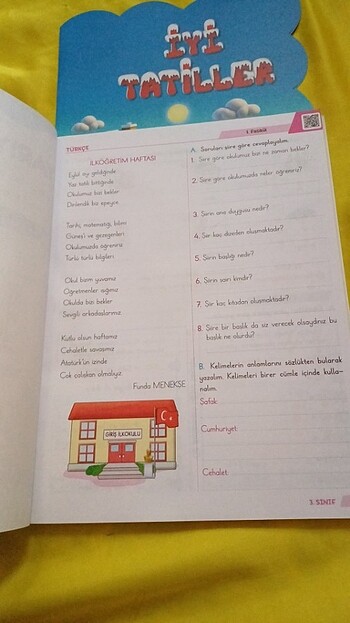 İYİ
TATİLLER
1. Etkinlik
TÜRKÇE
İLKÖĞRETİM HAFTASI
Eylül ay geldiğinde
Yaz tatili bittiğinde
Okulumuz bizi bekler
Dinlendik biz epeyce
Tarihi, matematiği, bilimi
Güneş'i ve gezegenleri
Okulumuzda öğreniriz
Türlü türlü bilgileri
Okul bizim yuvamız
Öğretmenler ışığımız
Okulda bizi bekler
Sevgili arkadaşlarımız
Kutlu olsun haftamız
Cehaletle savaşımız
Atatürk'ün izinde
Çok çalışkan olmalıyız
Funda MENEKŞE
GİRİŞ İLKOKULU
A. Soruları şiire göre cevaplayalım.
1. Şiire göre okulumuz bizi ne zaman bekler?
2. Şiire göre okulumuzda neler öğreniriz?
3. Şiirin ana duygusu nedir?
4. Şiir kaç dizeden oluşmaktadır?
5. Şiirin başlığı nedir?
6. Şiirin şairi kimdir?
7. Şiir kaç kıtadan oluşmaktadır?
8. Şiire bir başlık da siz verecek olsaydınız bu
başlık ne olurdu?
B. Kelimelerin anlamlarını sözlükten bularak
yazalım. Kelimeleri birer cümle içinde kulla-
nalım.
Şafak:
Cumhuriyet:
Cehalet:
3. SINIF